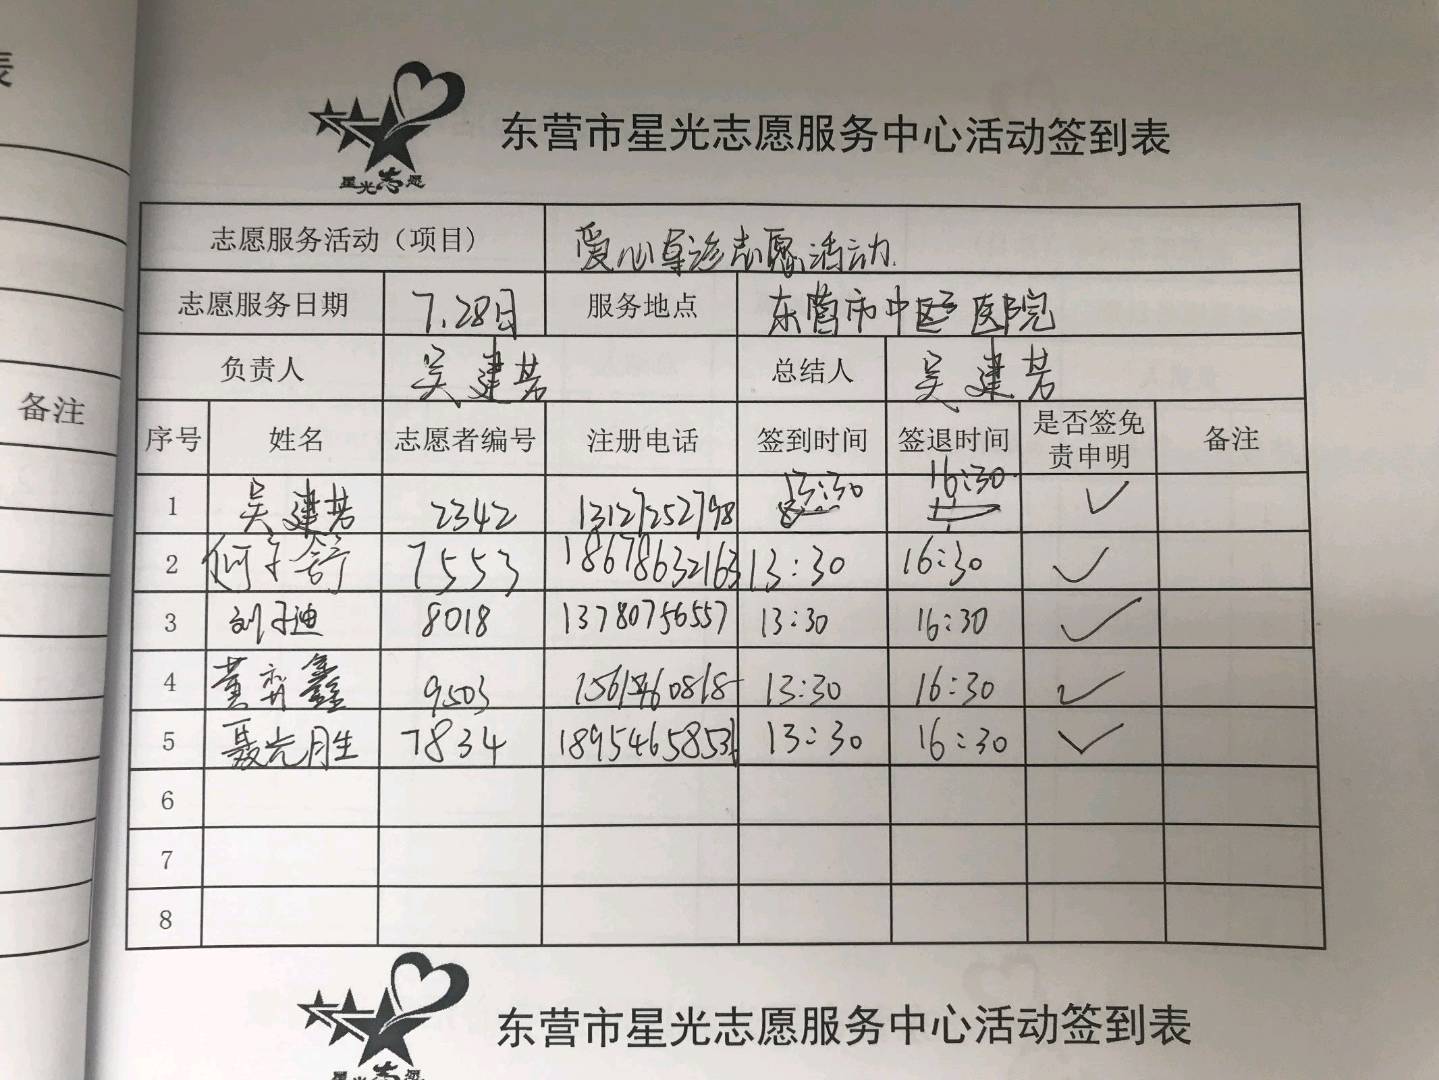 表
备注
星光志愿
东营市星光志愿服务中心活动签到表
志愿服务活动（项目） 爱心导诊志愿活动
志愿服务日期 7.28日 服务地点 东营市中医院
负责人 吴建芳 总结人 吴建芳
序号 姓名 志愿者编号 注册电话 签到时间 签退时间 是否签免责申明 备注
1 吴建芳 2342 13127252798 13:30 16:30 ✓
2 何子舒 7553 18678632163 13:30 16:30 ✓
3 刘子迪 8018 13780756557 13:30 16:30 ✓
4 黄弈鑫 9503 13:30 16:30 ✓
5 聂光胜 7834 13:30 16:30 ✓
6
7
8
东营市星光志愿服务中心活动签到表
星光志愿